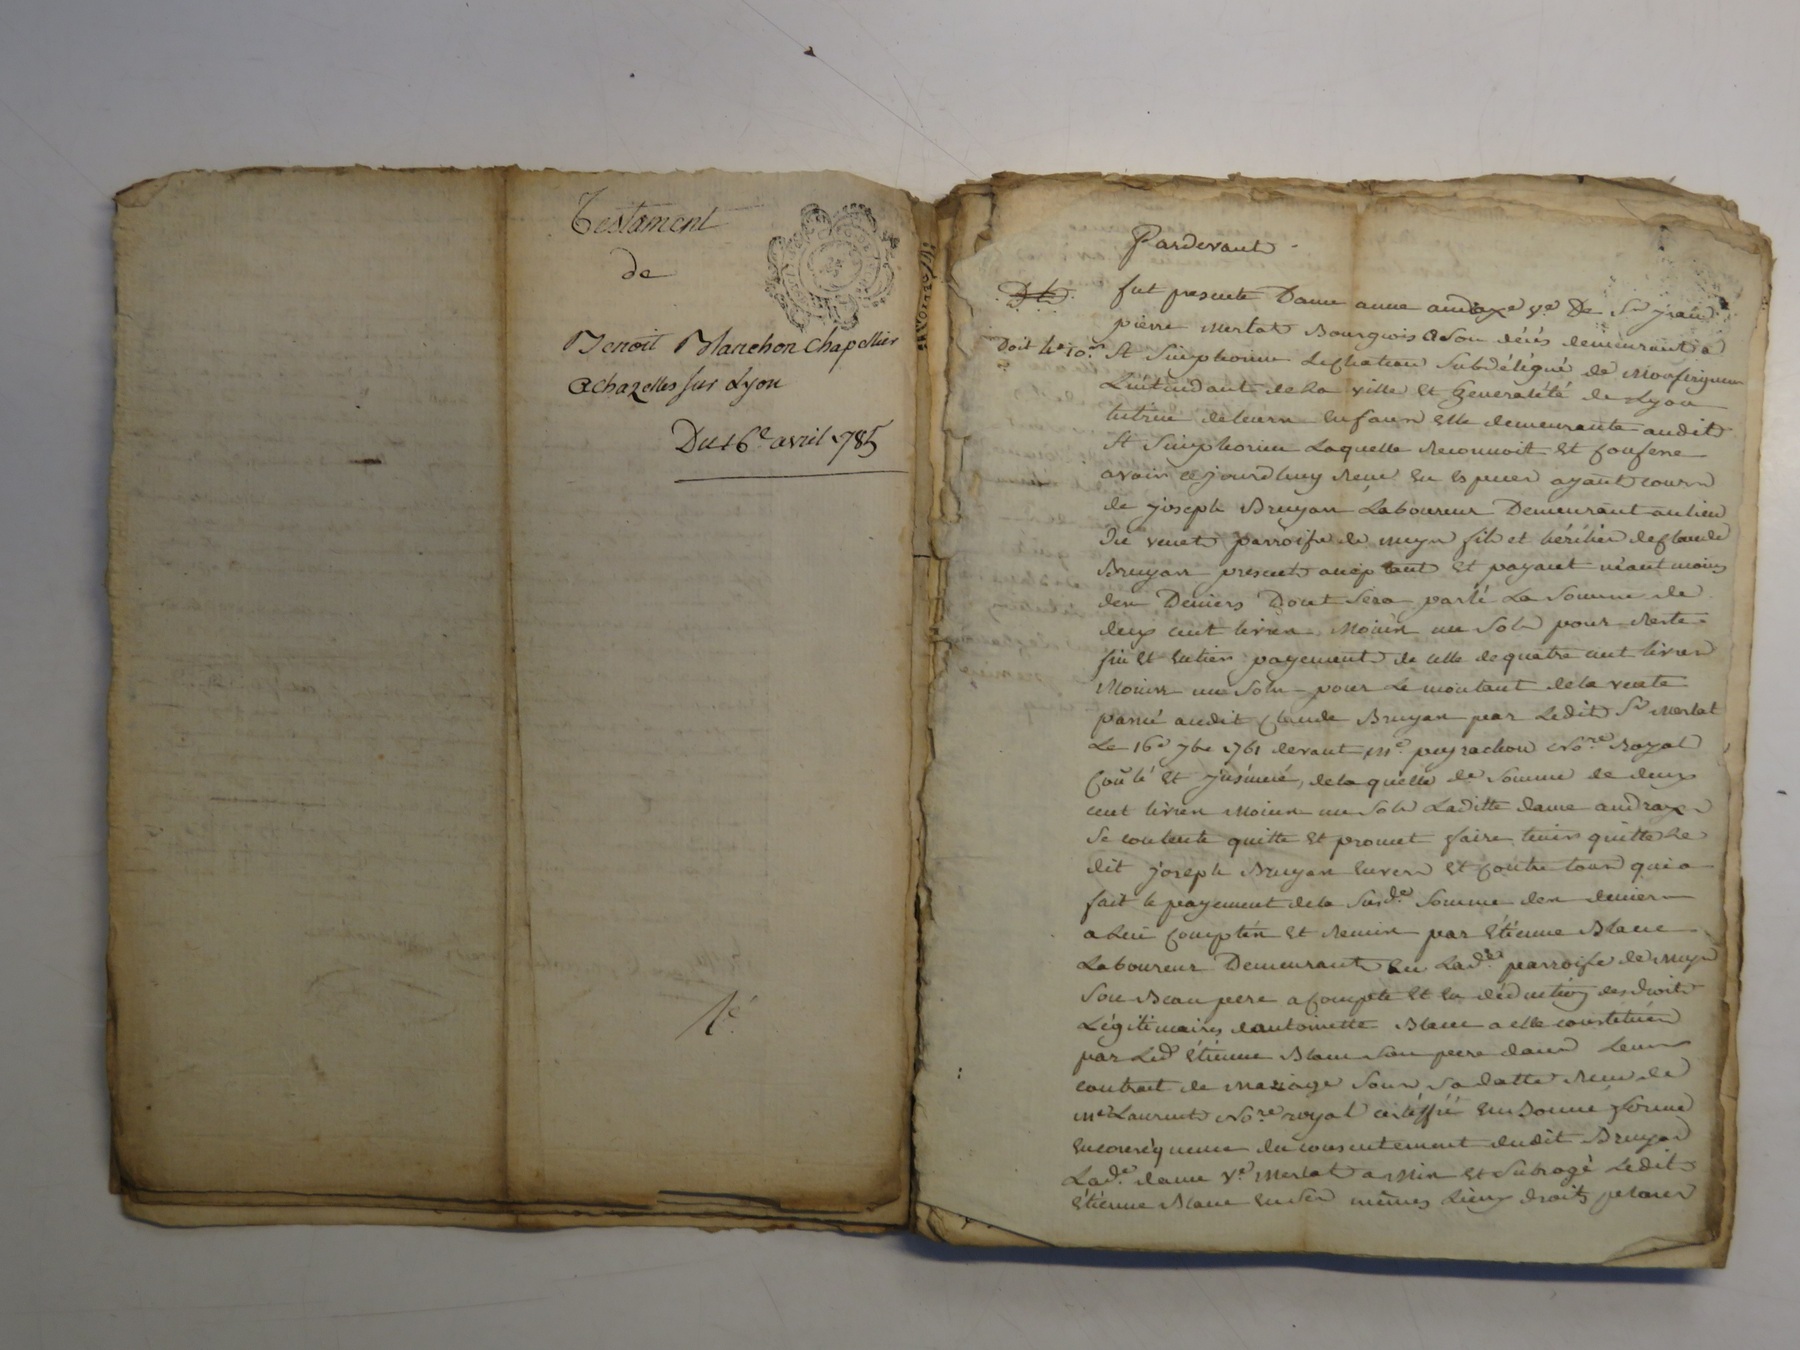 Testament
de
Benoit Blanchon Chapellier
a chazelles sur Lyon
Du 16e avril 1785
Pardevant
fut presente Dame anne androxe ve De Sr jean
pierre Merlat Bourgois a Son décés demeurant a
Doit le 10e
St Simphorien Le Chateau Subdélégué de Monseigneur
L'intendant de la ville et Generalité de Lyon
tutrice de leurs enfans Elle demeurante audit
St Simphorien Laquelle Reconnoit et Confesse
avoir cejourdhuy Receu En Especes ayant cours
de joseph Bruyan Laboureur Demeurant au lieu
Du venet parroisse de meys fils et héritier de Claude
Bruyan present acceptant et payant néantmoins
des Deniers Dont Sera parlé La Somme de
deux cent livres Moins un Sols pour Reste
fin et Entier payement de celle de quatre cent livres
Moins un Sols pour Le montant de la vente
passé audit Claude Bruyan par Ledit Sr Merlat
Le 16e 7bre 1761 devant Me peyrachon Nore Royal
Conlé et jnsinué, de laquelle de Somme de deux
cent livres Moins un Sols Laditte dame androxe
Se contente quitte et promet faire tenir quitte Le
dit joseph Bruyan Envers et Contre tous qui a
fait le payement de la Susde Somme des deniers
a Lui Comptés et Remis par Etienne Blanc
Laboureur Demeurant En Lade parroisse de Meys
Son Beau pere a Compte et En déduction des droits
Légitimaires d'antoinette Blanc a elle constitués
par Led Etienne Blanc Son pere dans Leur
contrat de Mariage Sous Sa datte Receu de
Me Laurent Nore royal En Bonne forme
En conséquence du consentement dudit Bruyan
Lade dame ve Merlat a Mis et Subrogé Ledit
Etienne Blanc En Ses mêmes Lieux droits